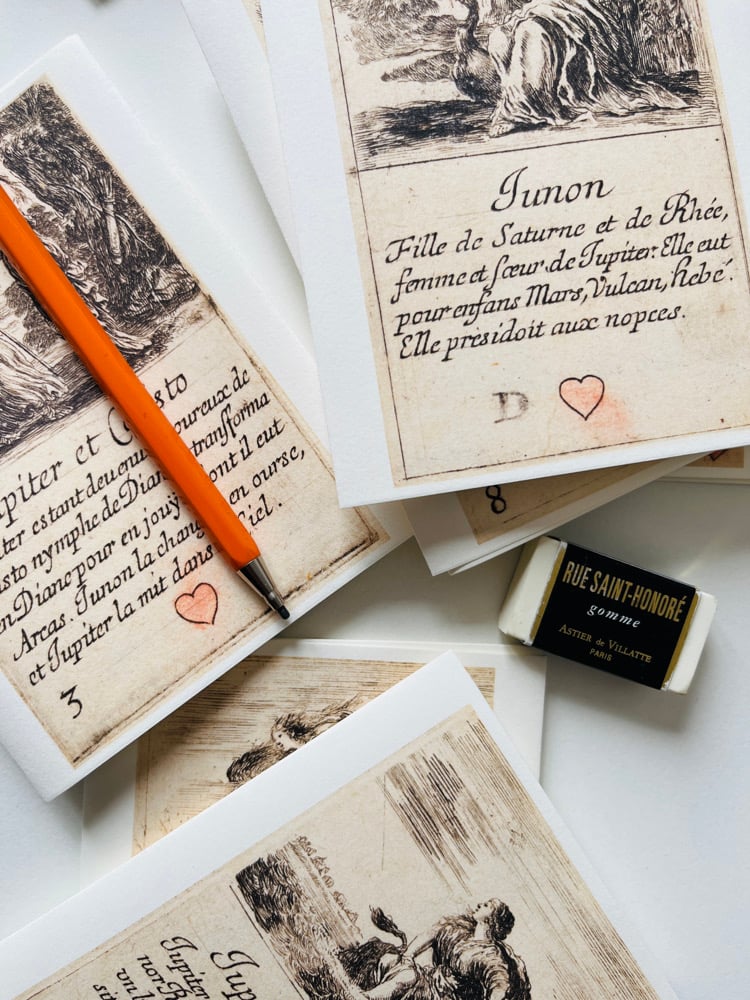 Junon
Fille de Saturne et de Rhée,
femme et sœur de Jupiter. Elle eut
pour enfans Mars, Vulcan, hebé.
Elle présidoit aux nopces.
D
8
piter et sto
ter estant deuenu oureux de
isto nymphe de Diane transforma
en Diane pour en jouÿ dont il eut
Arcas. Junon la chang en ourse,
et Jupiter la mit dans Ciel.
3
RUE SAINT-HONORÉ
gomme
ASTIER de VILLATTE
PARIS
Jup
Jupiter
non
vn